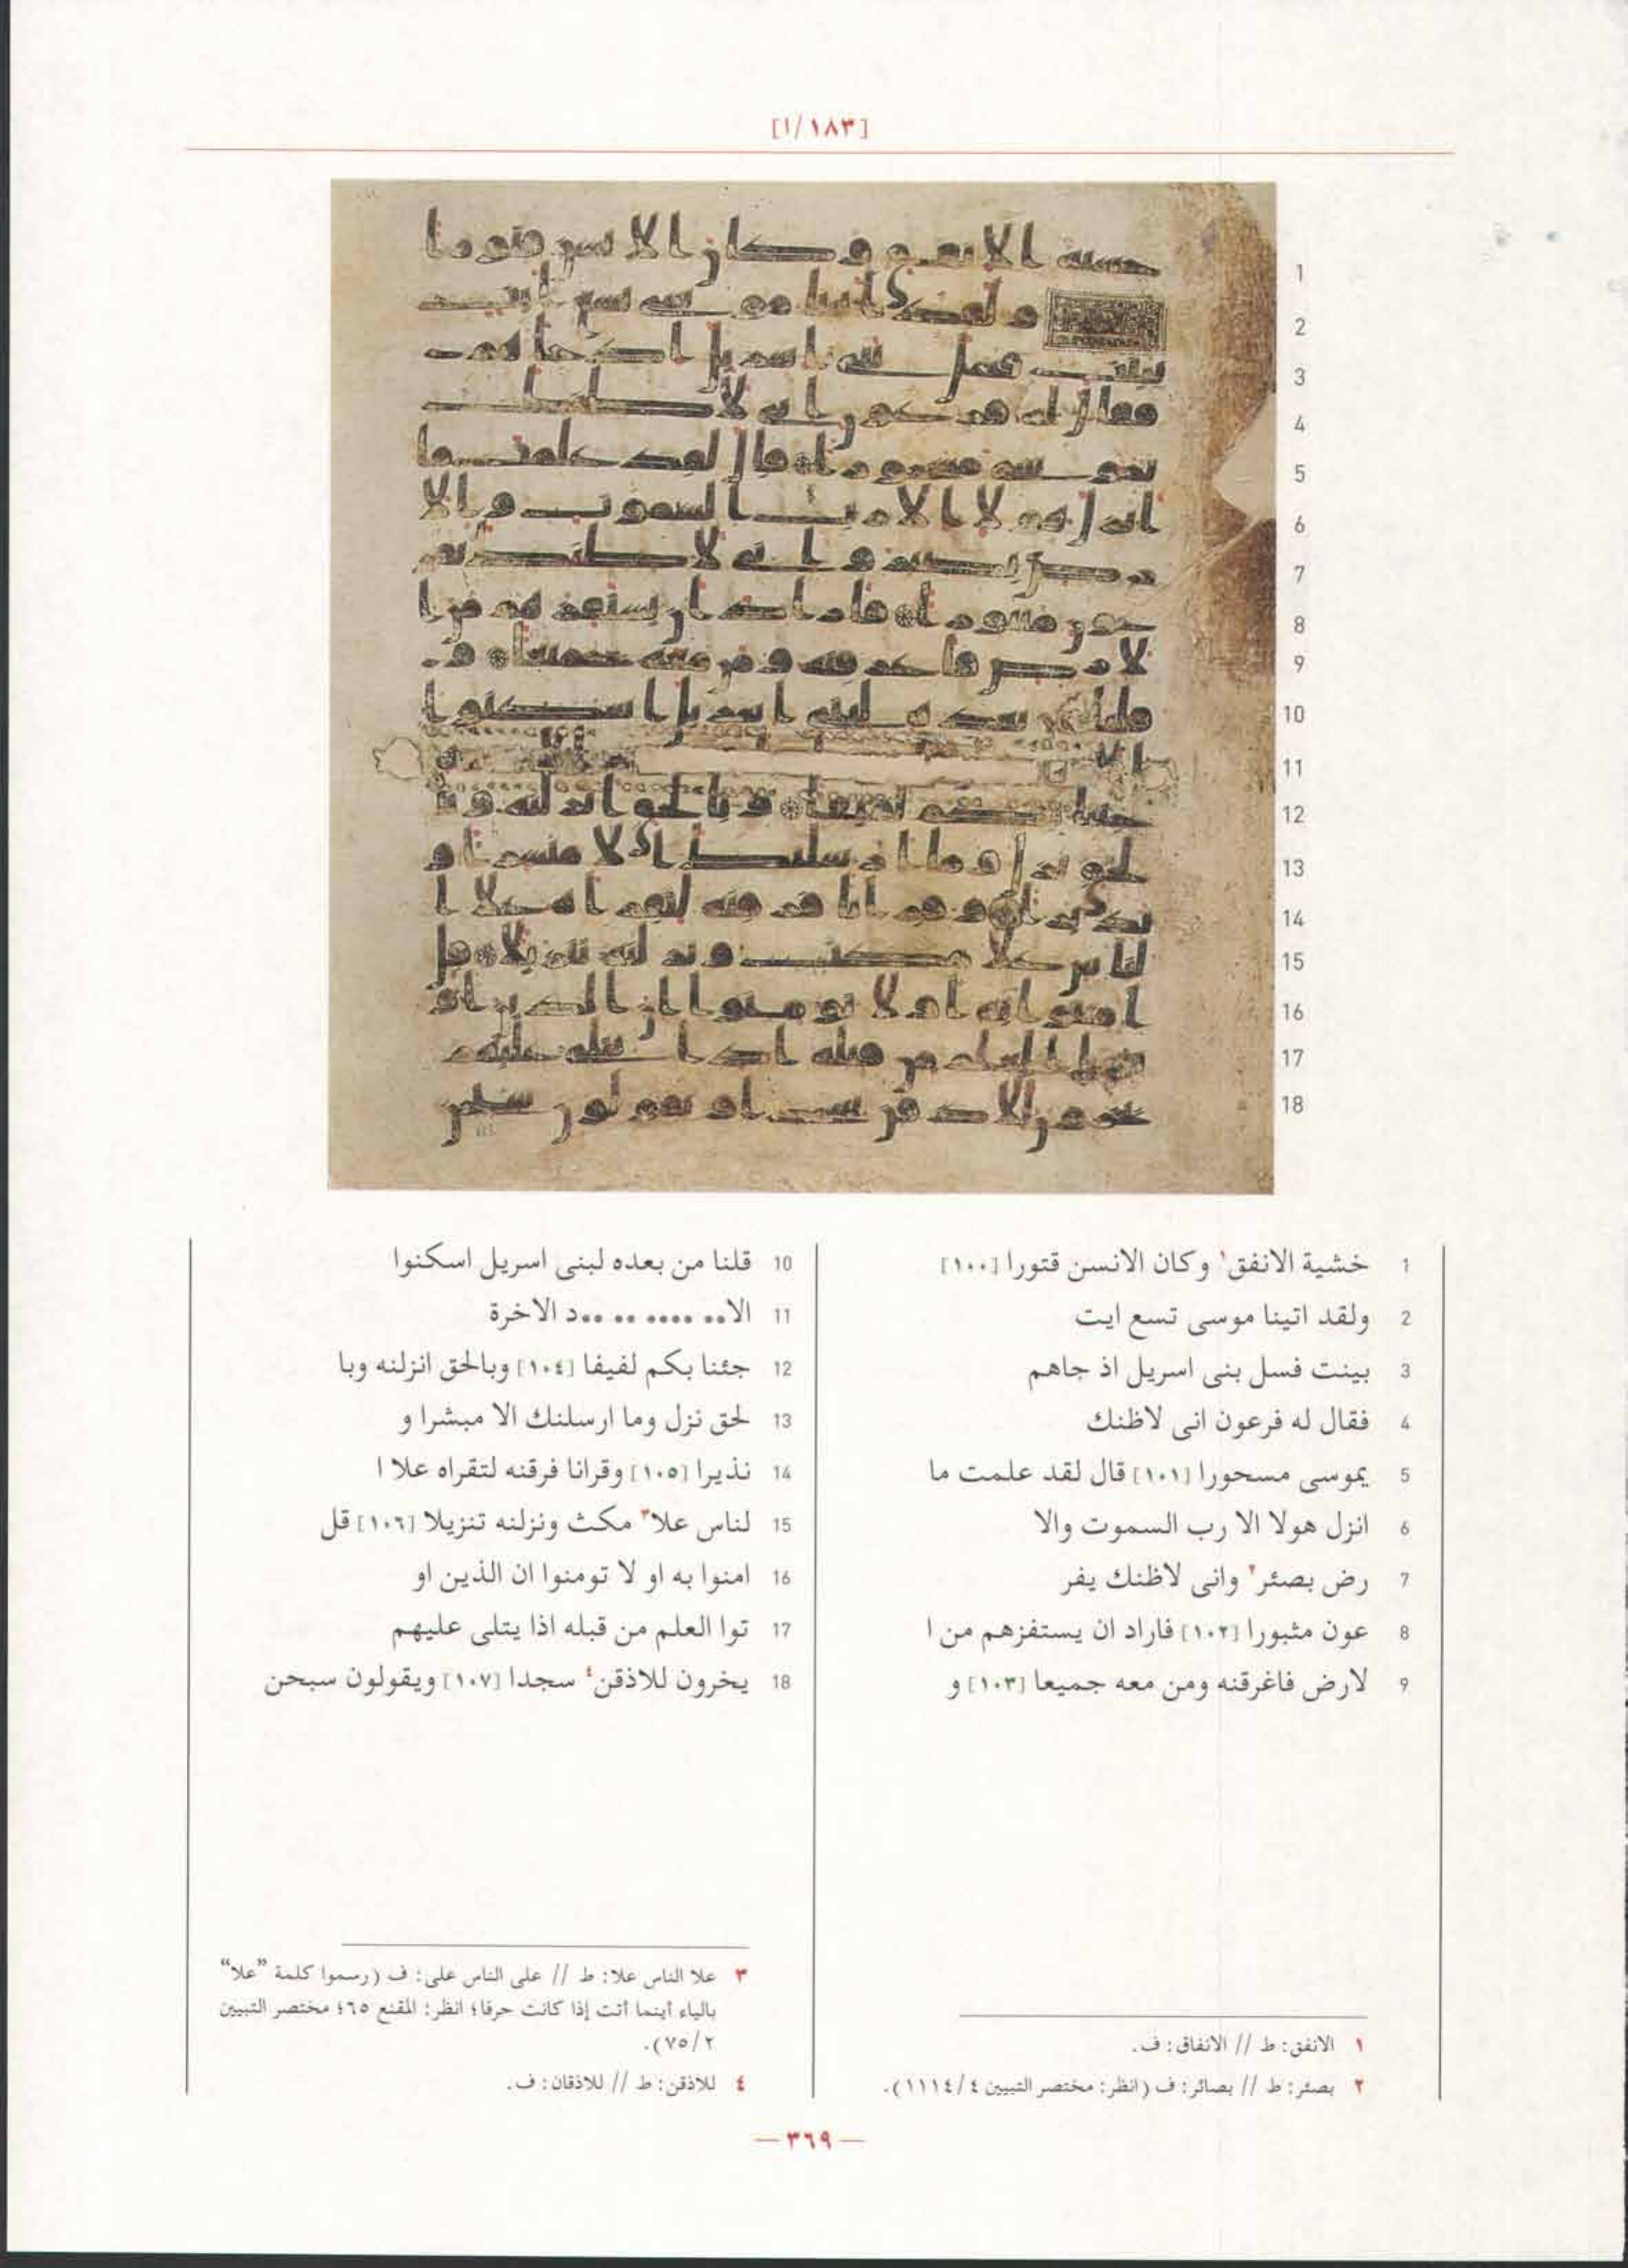 [١٨٣/١]
1 خشية الانفق١ وكان الانسن قتورا [١٠٠]
2 ولقد اتينا موسى تسع ايت
3 بينت فسل بنى اسريل اذ جاهم
4 فقال له فرعون انى لاظنك
5 يموسى مسحورا [١٠١] قال لقد علمت ما
6 انزل هولا الا رب السموت والا
7 رض بصئر٢ وانى لاظنك يفر
8 عون مثبورا [١٠٢] فاراد ان يستفزهم من ا
9 لارض فاغرقنه ومن معه جميعا [١٠٣] و
10 قلنا من بعده لبنى اسريل اسكنوا
11 الا.. .... .. ..د الاخرة
12 جئنا بكم لفيفا [١٠٤] وبالحق انزلنه وبا
13 لحق نزل وما ارسلنك الا مبشرا و
14 نذيرا [١٠٥] وقرانا فرقنه لتقراه علا ا
15 لناس علا٣ مكث ونزلنه تنزيلا [١٠٦] قل
16 امنوا به او لا تومنوا ان الذين او
17 توا العلم من قبله اذا يتلى عليهم
18 يخرون للاذقن٤ سجدا [١٠٧] ويقولون سبحن
١ الانفق: ط // الانفاق: ف.
٢ بصئر: ط // بصائر: ف (انظر: مختصر التبيين ٤/١١١٤).
٣ علا الناس علا: ط // على الناس على: ف (رسموا كلمة ”علا“
بالياء أينما أتت إذا كانت حرفا؛ انظر: المقنع ٦٥؛ مختصر التبيين
٧٥/٢).
٤ للاذقن: ط // للاذقان: ف.
— ٣٦٩ —